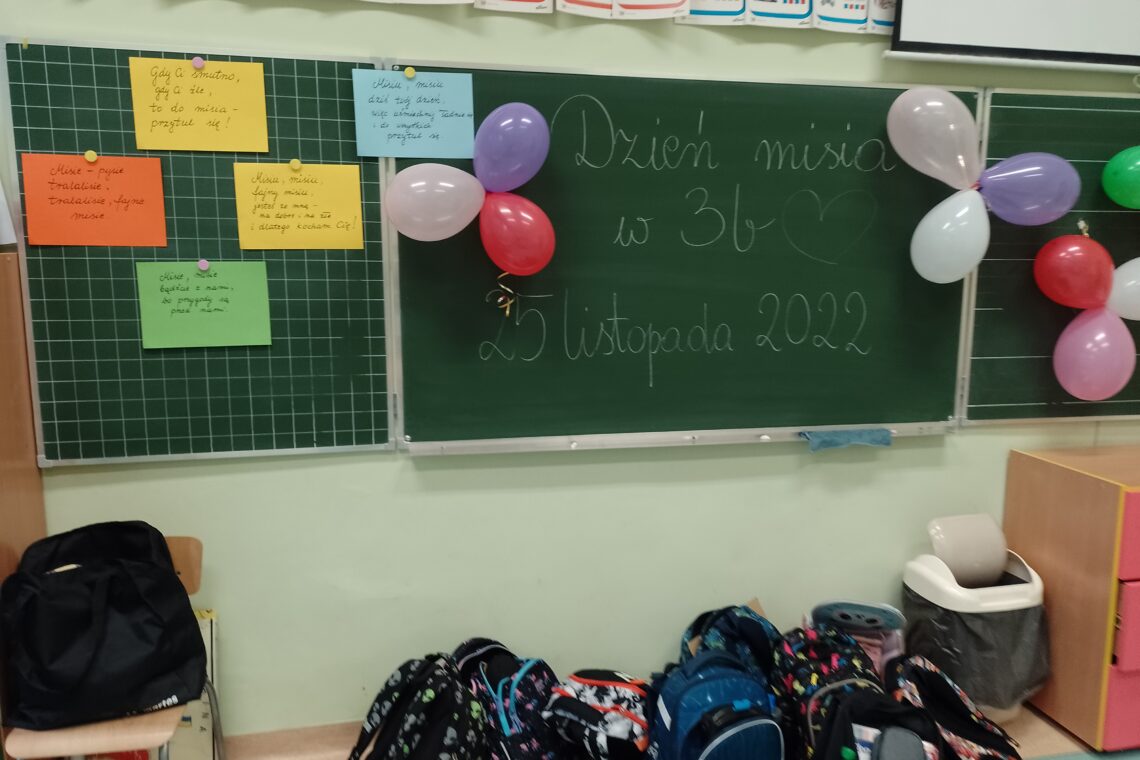 Gdy Ci smutno,
gdy Ci źle,
to do misia -
przytul się!
Misiu, misiu
dziś twój dzień,
więc uśmiechnij ładnie się
i do wszystkich
przytul się.
Misie - pysie
tralalisie,
tralalisie, fajne
misie.
Misiu, misiu,
fajny misiu,
jesteś ze mną -
na dobre i na złe
i dlatego kocham Cię!
Misie, misie
bądźcie z nami,
bo przygody są
przed nami.
Dzień misia
w 3b
25 listopada 2022